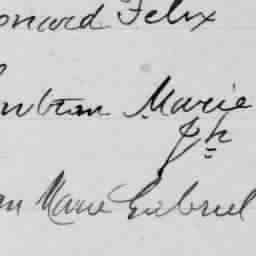 onard Felix
Marie
Jh
an Marie Gabriel